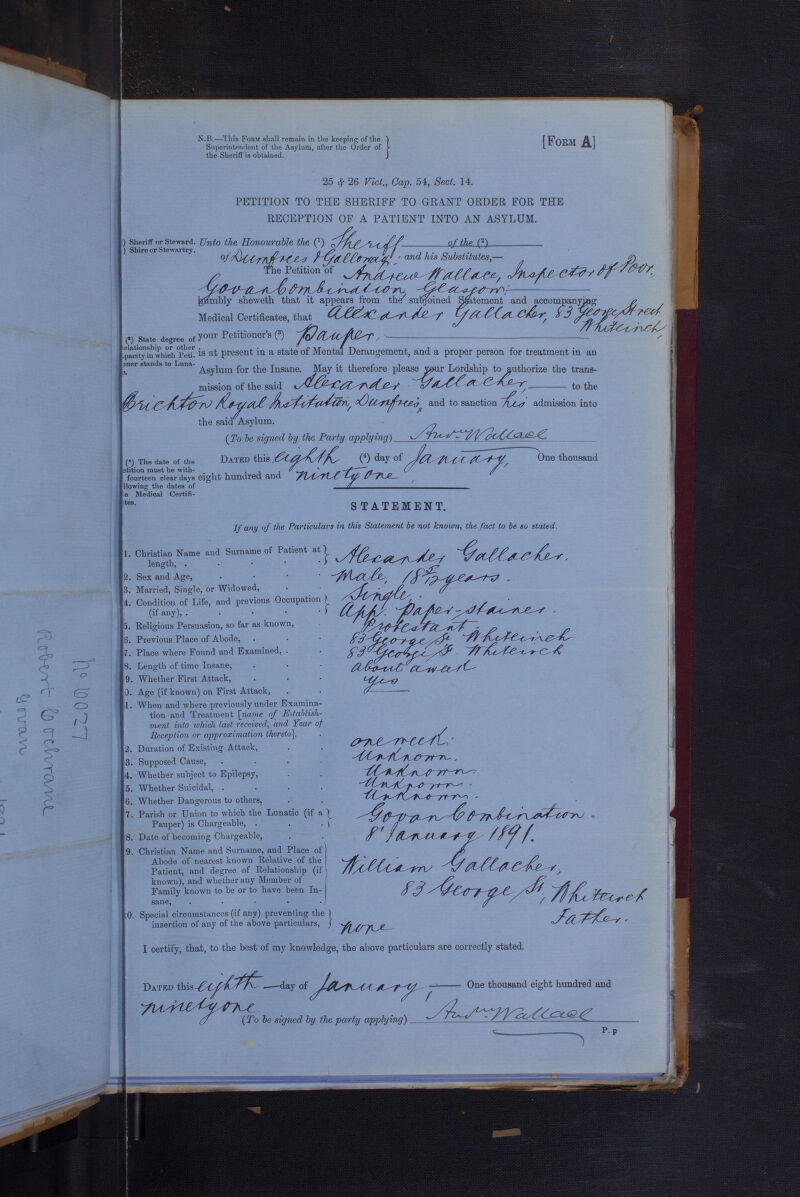 N.B.—This Form shall remain in the keeping of the
Superintendent of the Asylum, after the Order of
the Sheriff is obtained.
[Form A]
25 & 26 Vict., Cap. 54, Sect. 14.
PETITION TO THE SHERIFF TO GRANT ORDER FOR THE
RECEPTION OF A PATIENT INTO AN ASYLUM.
) Sheriff or Steward.
) Shire or Stewartry.
Unto the Honourable the (1) Sheriff of the (2)
of Dumfries & Galloway and his Substitutes,—
The Petition of Andrew Wallace, Inspector of Poor,
Govan Combination, Glasgow.
humbly sheweth that it appears from the subjoined Statement and accompanying
Medical Certificates, that Alexander Gallacher, 83 George Street
Whiteinch,
(3) State degree of
elationship or other
pacity in which Peti-
oner stands to Luna-
your Petitioner's (3) Pauper,
is at present in a state of Mental Derangement, and a proper person for treatment in an
Asylum for the Insane. May it therefore please your Lordship to authorize the trans-
mission of the said Alexander Gallacher, to the
Crichton Royal Institution, Dumfries, and to sanction his admission into
the said Asylum.
(To be signed by the Party applying) Andw. Wallace
(4) The date of the
etition must be with-
fourteen clear days
llowing the dates of
e Medical Certifi-
tes.
Dated this eighth (4) day of January, One thousand
eight hundred and ninety one
STATEMENT.
If any of the Particulars in this Statement be not known, the fact to be so stated.
1. Christian Name and Surname of Patient at
length, . Alexander Gallacher.
2. Sex and Age, Male, 18 years.
3. Married, Single, or Widowed, Single.
4. Condition of Life, and previous Occupation
(if any), . App. Paper-stainer.
5. Religious Persuasion, so far as known, Protestant
6. Previous Place of Abode, . 83 George St Whiteinch
7. Place where Found and Examined, . 83 George St Whiteinch
8. Length of time Insane, about a week
9. Whether First Attack, Yes
0. Age (if known) on First Attack,
1. When and where previously under Examina-
tion and Treatment [name of Establish-
ment into which last received, and Year of
Reception or approximation thereto],
2. Duration of Existing Attack, one week.
3. Supposed Cause, Unknown.
4. Whether subject to Epilepsy, Unknown.
5. Whether Suicidal, . Unknown.
6. Whether Dangerous to others, Unknown.
7. Parish or Union to which the Lunatic (if a
Pauper) is Chargeable, . Govan Combination.
8. Date of becoming Chargeable, 8' January 1891.
9. Christian Name and Surname, and Place of
Abode of nearest known Relative of the
Patient, and degree of Relationship (if
known), and whether any Member of
Family known to be or to have been In-
sane,
William Gallacher,
83 George St, Whiteinch
Father.
0. Special circumstances (if any) preventing the
insertion of any of the above particulars, none
I certify, that, to the best of my knowledge, the above particulars are correctly stated.
Dated this eighth day of January, One thousand eight hundred and
ninety one
(To be signed by the party applying) Andw. Wallace
P. p
No 6027
Robert Cochrane
Govan